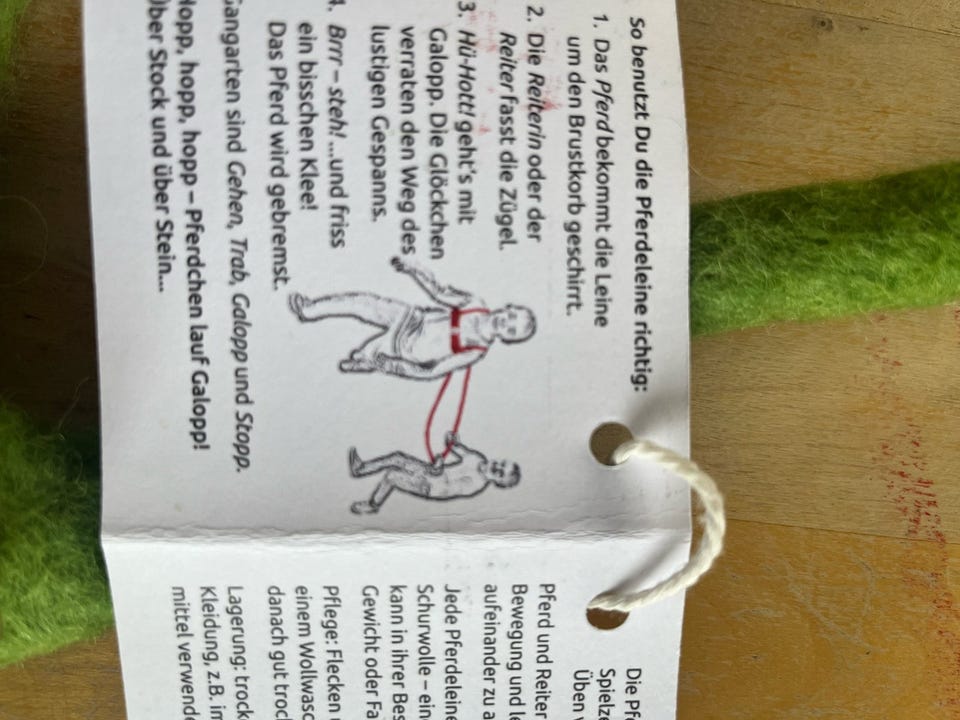 So benutzt Du die Pferdeleine richtig:
1. Das Pferd bekommt die Leine
um den Brustkorb geschirrt.
2. Die Reiterin oder der
Reiter fasst die Zügel.
3. Hü-Hott! geht's mit
Galopp. Die Glöckchen
verraten den Weg des
lustigen Gespanns.
4. Brrr – steh! ...und friss
ein bisschen Klee!
Das Pferd wird gebremst.
Gangarten sind Gehen, Trab, Galopp und Stopp.
Hopp, hopp, hopp – Pferdchen lauf Galopp!
Über Stock und über Stein...
Die
Üben
Pferd und Reiter
Bewegung und
aufeinander zu
Jede Pferdeleine
Schurwolle –
kann in ihrer
Gewicht oder
Pflege: Flecken
einem
danach gut
Lagerung:
Kleidung, z.B.